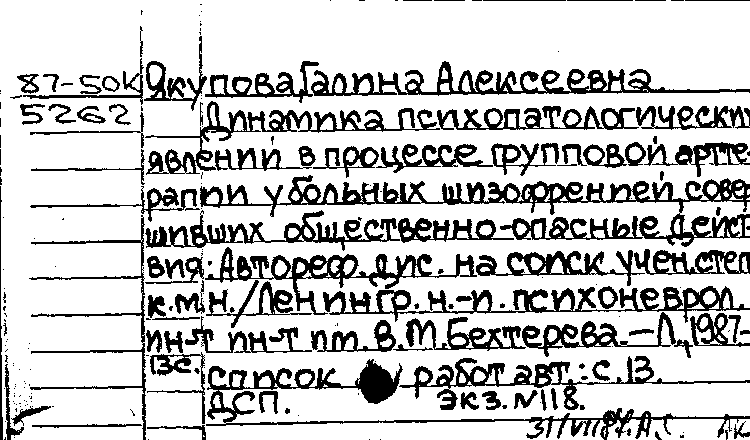 87-50к Якупова, Галина Алексеевна.
5262 Динамика психопатологических
явлений в процессе групповой артте-
рапии у больных шизофренией, совер-
шивших общественно-опасные дейст-
вия: Автореф. дис. на соиск. учен. степ.
к.м.н./Ленингр. н.-и. психоневрол.
ин-т им. В.М. Бехтерева. - Л., 1987-
13с.
список работ авт.: с. 13.
ДСП. Экз. N 118.
31/VII 87. А.С.